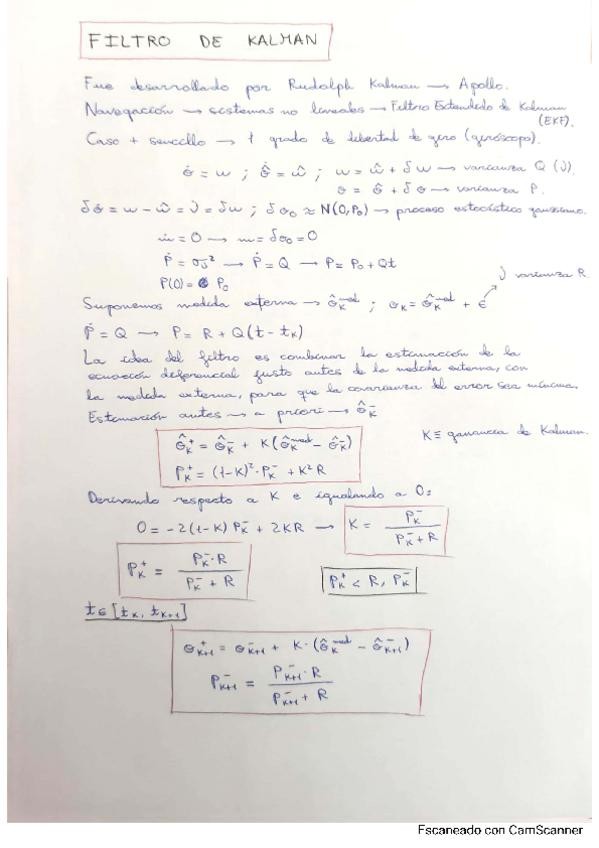 FILTRO DE KALMAN
Fue desarrollado por Rudolph Kalman → Apollo.
Navegación → sistemas no lineales → Filtro Extendido de Kalman (EKF).
Caso + sencillo → 1 grado de libertad de giro (giróscopo).
θ̇ = w ; θ̂̇ = ŵ ; w = ŵ + δw → varianza Q (ν).
θ = θ̂ + δθ → varianza P.
δθ̇ = w - ŵ = ν = δw ; δθ₀ ≈ N(0,P₀) → proceso estocástico gaussiano.
ṁ = 0 → m = δθ₀ = 0
Ṗ = σν² → Ṗ = Q → P = P₀ + Qt
P(0) = P₀
Suponemos medida externa → θ̂ₖᵐᵉᵈ ; θₖ = θ̂ₖᵐᵉᵈ + ε
varianza R
Ṗ = Q → P = R + Q(t - tₖ)
La idea del filtro es combinar la estimación de la
ecuación diferencial justo antes de la medida externa, con
la medida externa, para que la covarianza del error sea mínima.
Estimación antes → a priori → θ̂ₖ⁻
θ̂ₖ⁺ = θ̂ₖ⁻ + K(θ̂ₖᵐᵉᵈ - θ̂ₖ⁻)
K ≡ ganancia de Kalman.
Pₖ⁺ = (1-K)²·Pₖ⁻ + K²R
Derivando respecto a K e igualando a 0:
0 = -2(1-K)Pₖ⁻ + 2KR → K = Pₖ⁻ / (Pₖ⁻ + R)
Pₖ⁺ = Pₖ⁻·R / (Pₖ⁻ + R)
Pₖ⁺ < R, Pₖ⁻
t ∈ [tₖ, tₖ₊₁]
θ̂ₖ₊₁⁺ = θₖ₊₁⁻ + K·(θ̂ₖᵐᵉᵈ - θ̂ₖ₊₁⁻)
Pₖ₊₁⁻ = Pₖ₊₁⁻·R / (Pₖ₊₁⁻ + R)
Escaneado con CamScanner